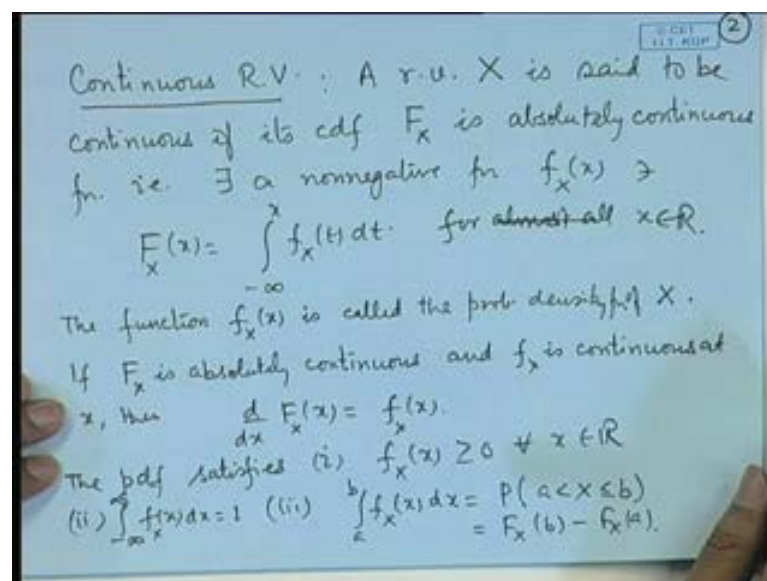 © CET
I.I.T. KGP
2
Continuous R.V. : A r.v. X is said to be
continuous if its cdf F_X is absolutely continuous
fn. ie. ∃ a nonnegative fn f_X(x) ∋
F_X(x) = ∫_{-∞}^{x} f_X(t) dt. for ~~almost all~~ x∈ℝ.
The function f_X(x) is called the prob density fn of X.
If F_X is absolutely continuous and f_X is continuous at
x, then d/dx F_X(x) = f_X(x).
The pdf satisfies (i) f_X(x) ≥ 0 ∀ x ∈ ℝ
(ii) ∫_{-∞}^{∞} f_X(x) dx = 1 (iii) ∫_a^b f_X(x) dx = P(a < X ≤ b)
= F_X(b) − F_X(a).